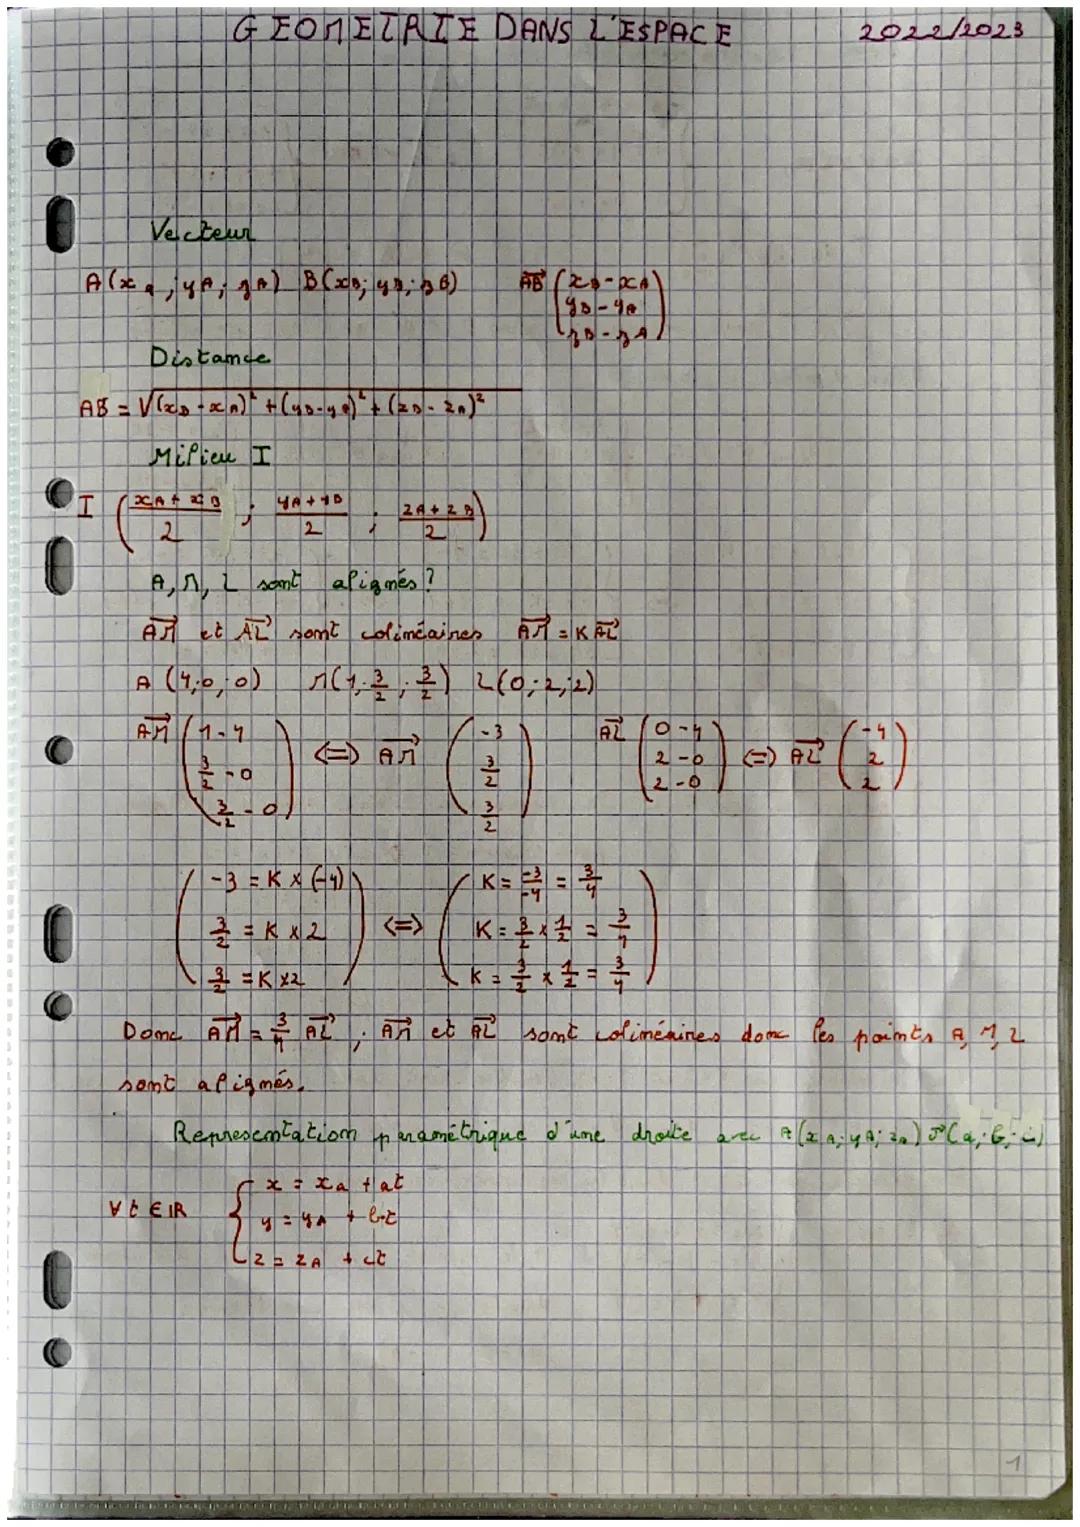 GEOMETRIE DANS L'ESPACE 2022/2023
Vecteur
A(xA; yA; zA) B(xB; yB; zB) AB→ (xB-xA
yB-yA
zB-zA)
Distance
AB = √(xB-xA)² + (yB-yA)² + (zB-zA)²
Milieu I
I (xA+xB/2 ; yA+yB/2 ; zA+zB/2)
A, M, L sont alignés ?
AM→ et AL→ sont colinéaires AM→ = K AL→
A (4;0;0) M(1; 3/2; 3/2) L(0;2;2)
AM→ (1-4
3/2-0
3/2-0) <=> AM→ (-3
3/2
3/2) AL→ (0-4
2-0
2-0) <=> AL→ (-4
2
2)
(-3 = K x (-4)
3/2 = K x 2
3/2 = K x 2) <=> (K = -3/-4 = 3/4
K = 3/2 x 1/2 = 3/4
K = 3/2 x 1/2 = 3/4)
Donc AM→ = 3/4 AL→ ; AM→ et AL→ sont colinéaires donc les points A, M, L
sont alignés.
Representation paramétrique d'une droite avec A(xA; yA; zA) (a; b; c)
∀ t ∈ IR { x = xA + at
y = yA + bt
z = zA + ct
1